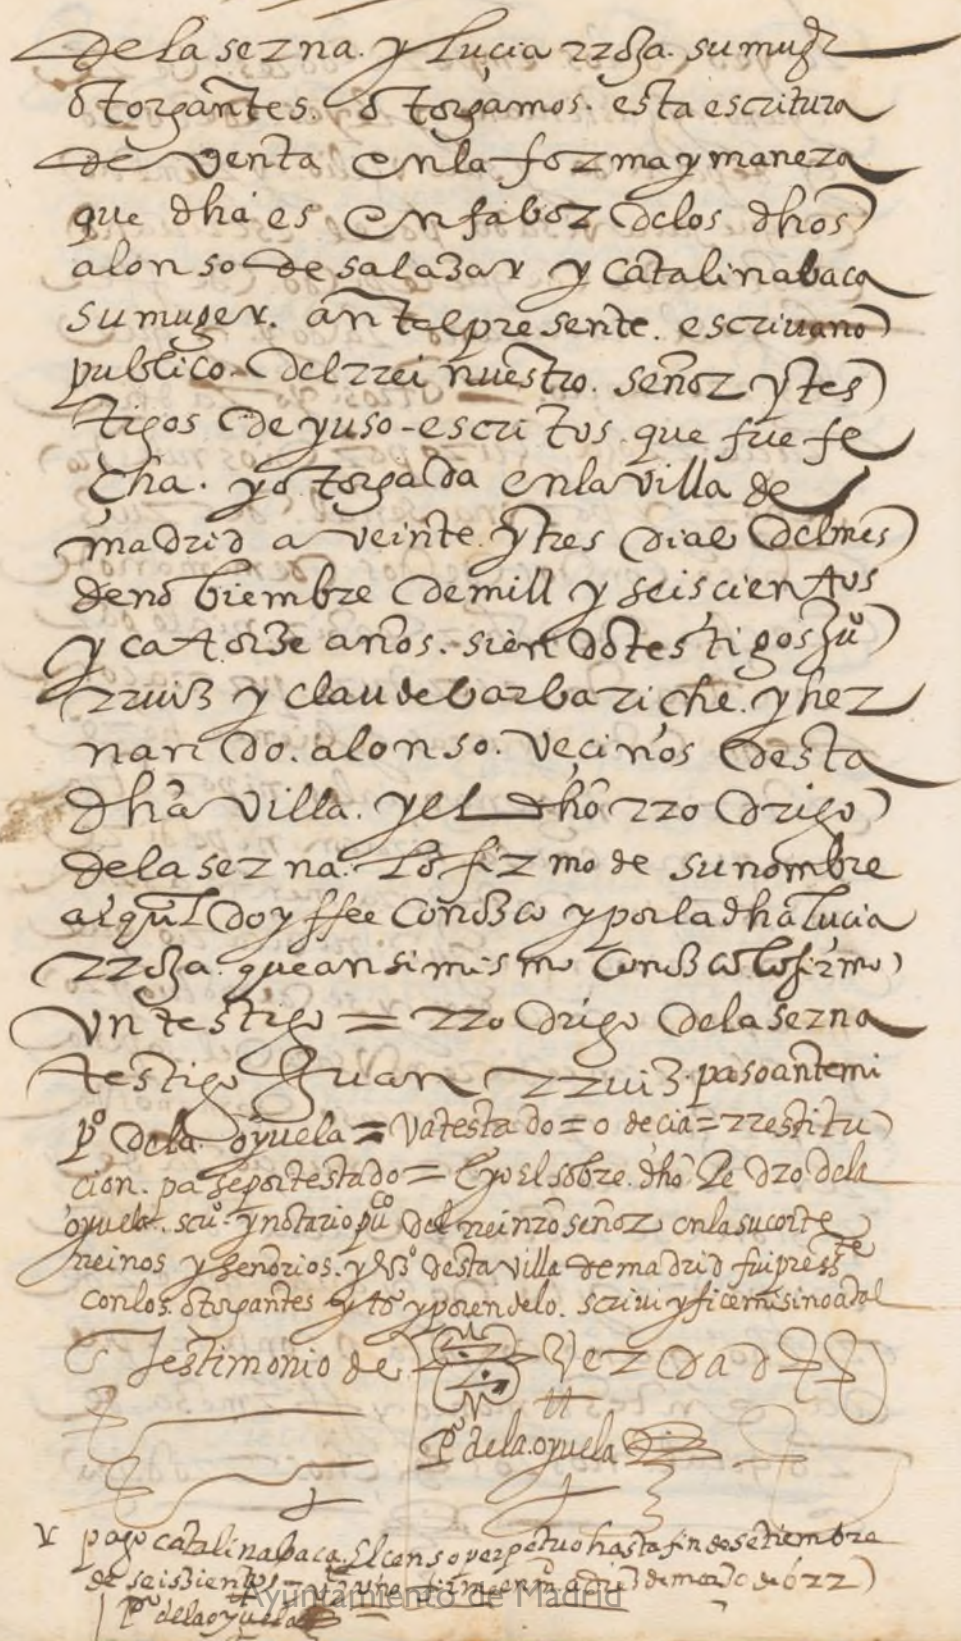 de la serna. y lucia rroza. su muger
otorgantes. otorgamos. esta escritura
de venta en la forma y manera
que dha es en fabor de los dhos
alonso de salazar y catalina baca
su muger. ante el presente. escrivano
publico. del rrei nuestro. señor y tes
tigos de yuso escritos que fue fe
cha. y otorgada en la villa de
madrid a veinte y tres dias del mes
de nobiembre de mill y seiscientos
y catorze años. siendo testigos Ju⁰
rruiz y claude barbariche. y her
nando. alonso. veçinos desta
dha villa. y el dho rrodrigo
de la serna. lo firmo de su nombre
al qual doy ffee conozco y por la dha lucia
rroza. que ansimismo conozco lo firmo
un testigo = rrodrigo de la serna
testigo Juan rruiz. paso ante mi
p⁰ de la oyuela = va testado = o decia = rrestitu
cion. pase por testado = E yo El sobre. dho Pedro de la
oyuela. scru⁰. y notario pu^co del rrei nro señor en la su corte
rreinos y señorios. y vz⁰ desta villa de madrid fui press^te
con los. otorgantes y t⁰ y por ende lo. scrivi y fice mi sino a tal
En Testimonio de Verdad
P⁰ de la oyuela
pago catalina baca. El censo perpetuo hasta fin de setiembre
de seiszientos y v^te y uno de março de 622
P⁰ de la oyuela
Ayuntamiento de Madrid